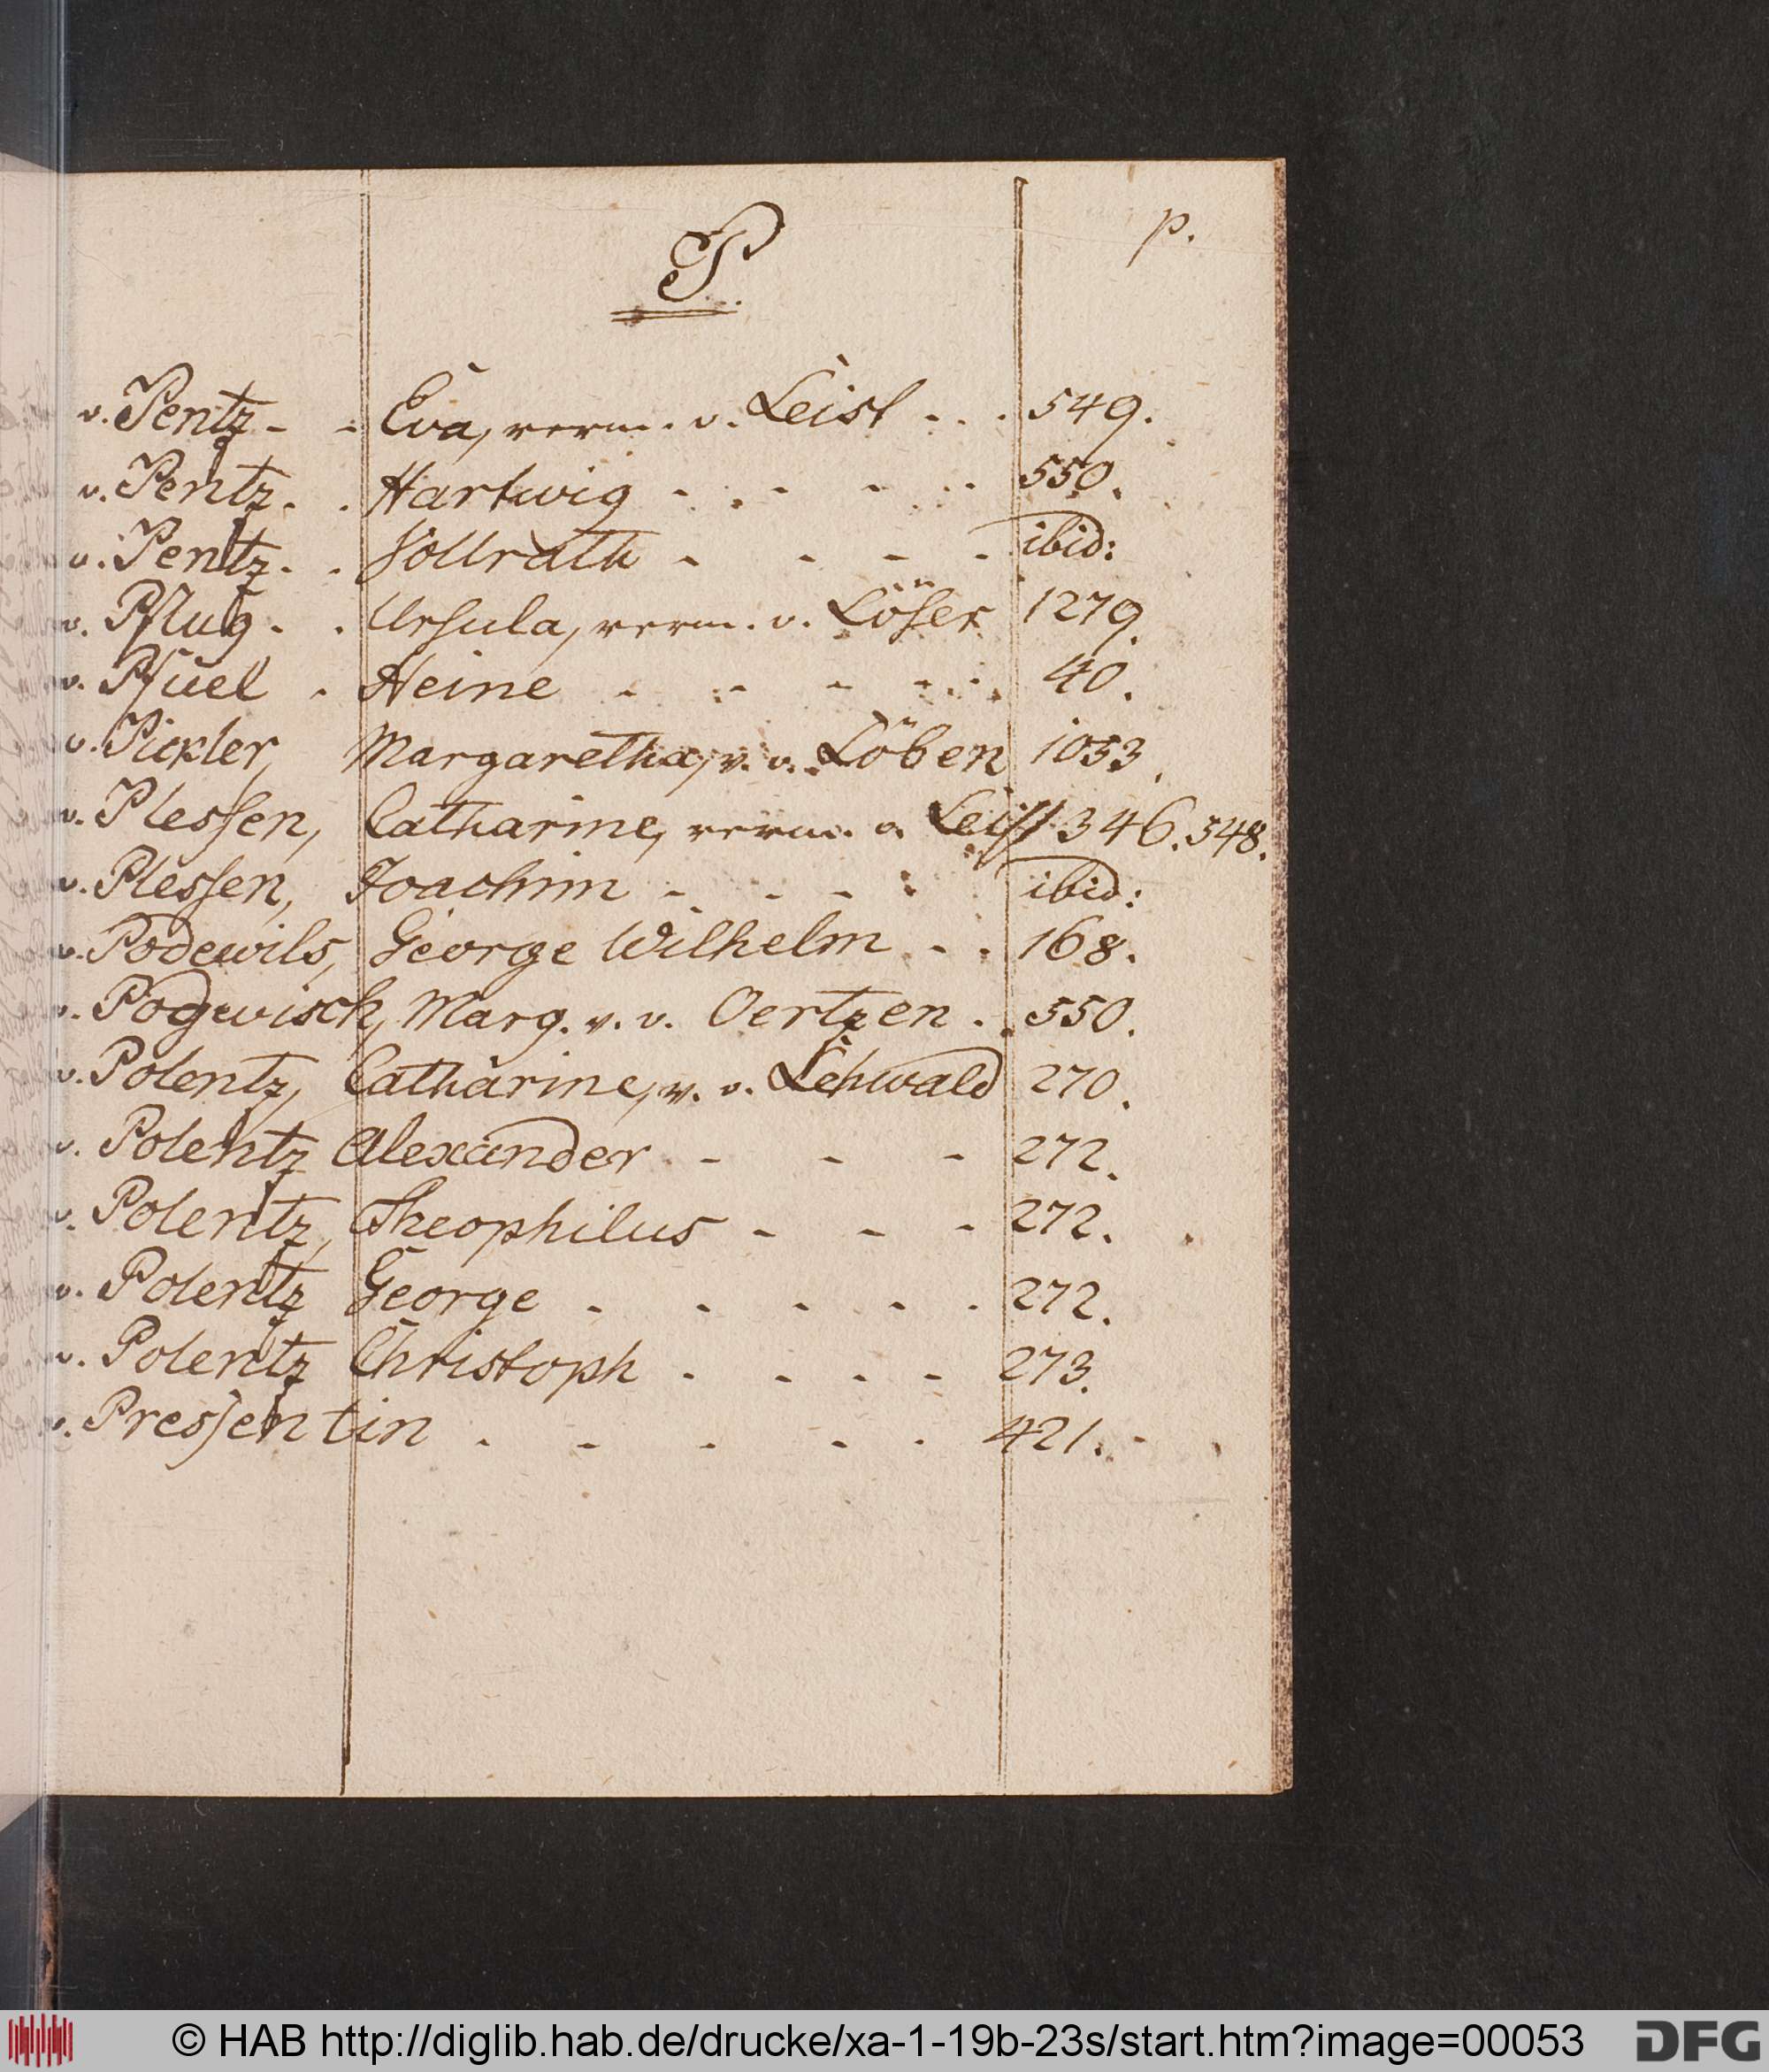 P
p.
v. Pentz - - Eva, verm. v. Leist - . . 549.
v. Pentz . . Hartwig - . - - . . 550.
v. Pentz . . Vollrath - - - - ibid:
v. Pflug . . Ursula, verm. v. Löser 1279.
v. Pfuel . Heine - . - - - . 40.
v. Pickler, Margaretha, v. v. Löben 1033.
v. Plessen, Catharine, verm. v. Leist 346. 348.
v. Plessen, Joachim - . - - . ibid:
v. Podewils, George Wilhelm - . 168.
v. Pogwisch, Marg. v. v. Oertzen . . 550.
v. Polentz, Catharine, v. v. Lehwald 270.
v. Polentz Alexander - - - 272.
v. Polentz, Theophilus - - - 272.
v. Polentz George - - - - . 272.
v. Polentz Christoph . - - - 273.
v. Pressentin . - - - . 421.
© HAB http://diglib.hab.de/drucke/xa-1-19b-23s/start.htm?image=00053
DFG